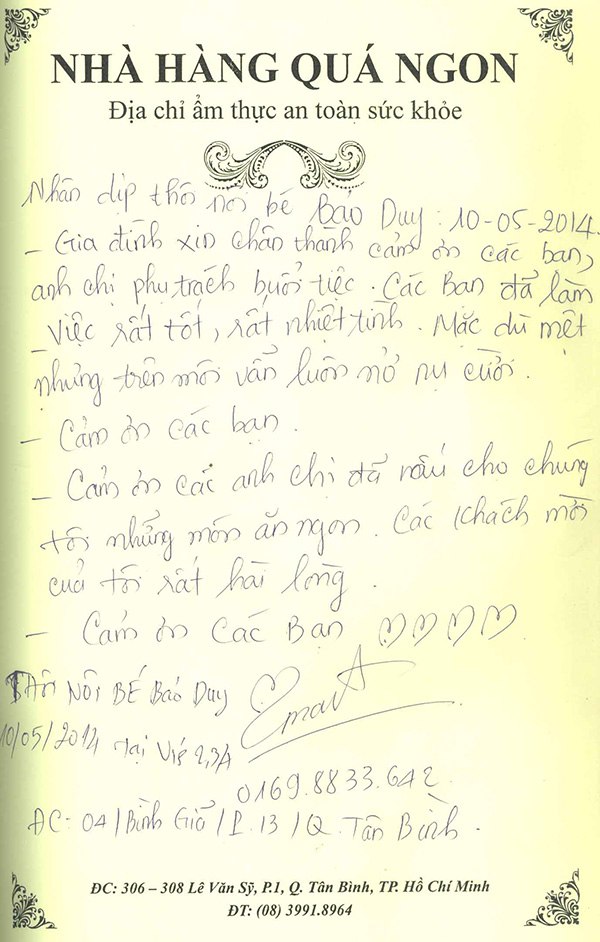 NHÀ HÀNG QUÁ NGON
Địa chỉ ẩm thực an toàn sức khỏe
Nhân dịp thôi nôi bé Bảo Duy: 10-05-2014.
- Gia đình xin chân thành cảm ơn các bạn,
anh chị phụ trách buổi tiệc. Các Bạn đã làm
việc rất tốt, rất nhiệt tình. Mặc dù mệt
nhưng trên môi vẫn luôn nở nụ cười.
- Cảm ơn các bạn.
- Cảm ơn các anh chị đã nấu cho chúng
tôi những món ăn ngon. Các khách mời
của tôi rất hài lòng.
- Cảm ơn Các Bạn
THÔI NÔI BÉ Bảo Duy
10/05/2014 tại Vip 2,3A
0169.8833.642
ĐC: 04/Bình Giã/P.13/Q.Tân Bình.
ĐC: 306 – 308 Lê Văn Sỹ, P.1, Q. Tân Bình, TP. Hồ Chí Minh
ĐT: (08) 3991.8964